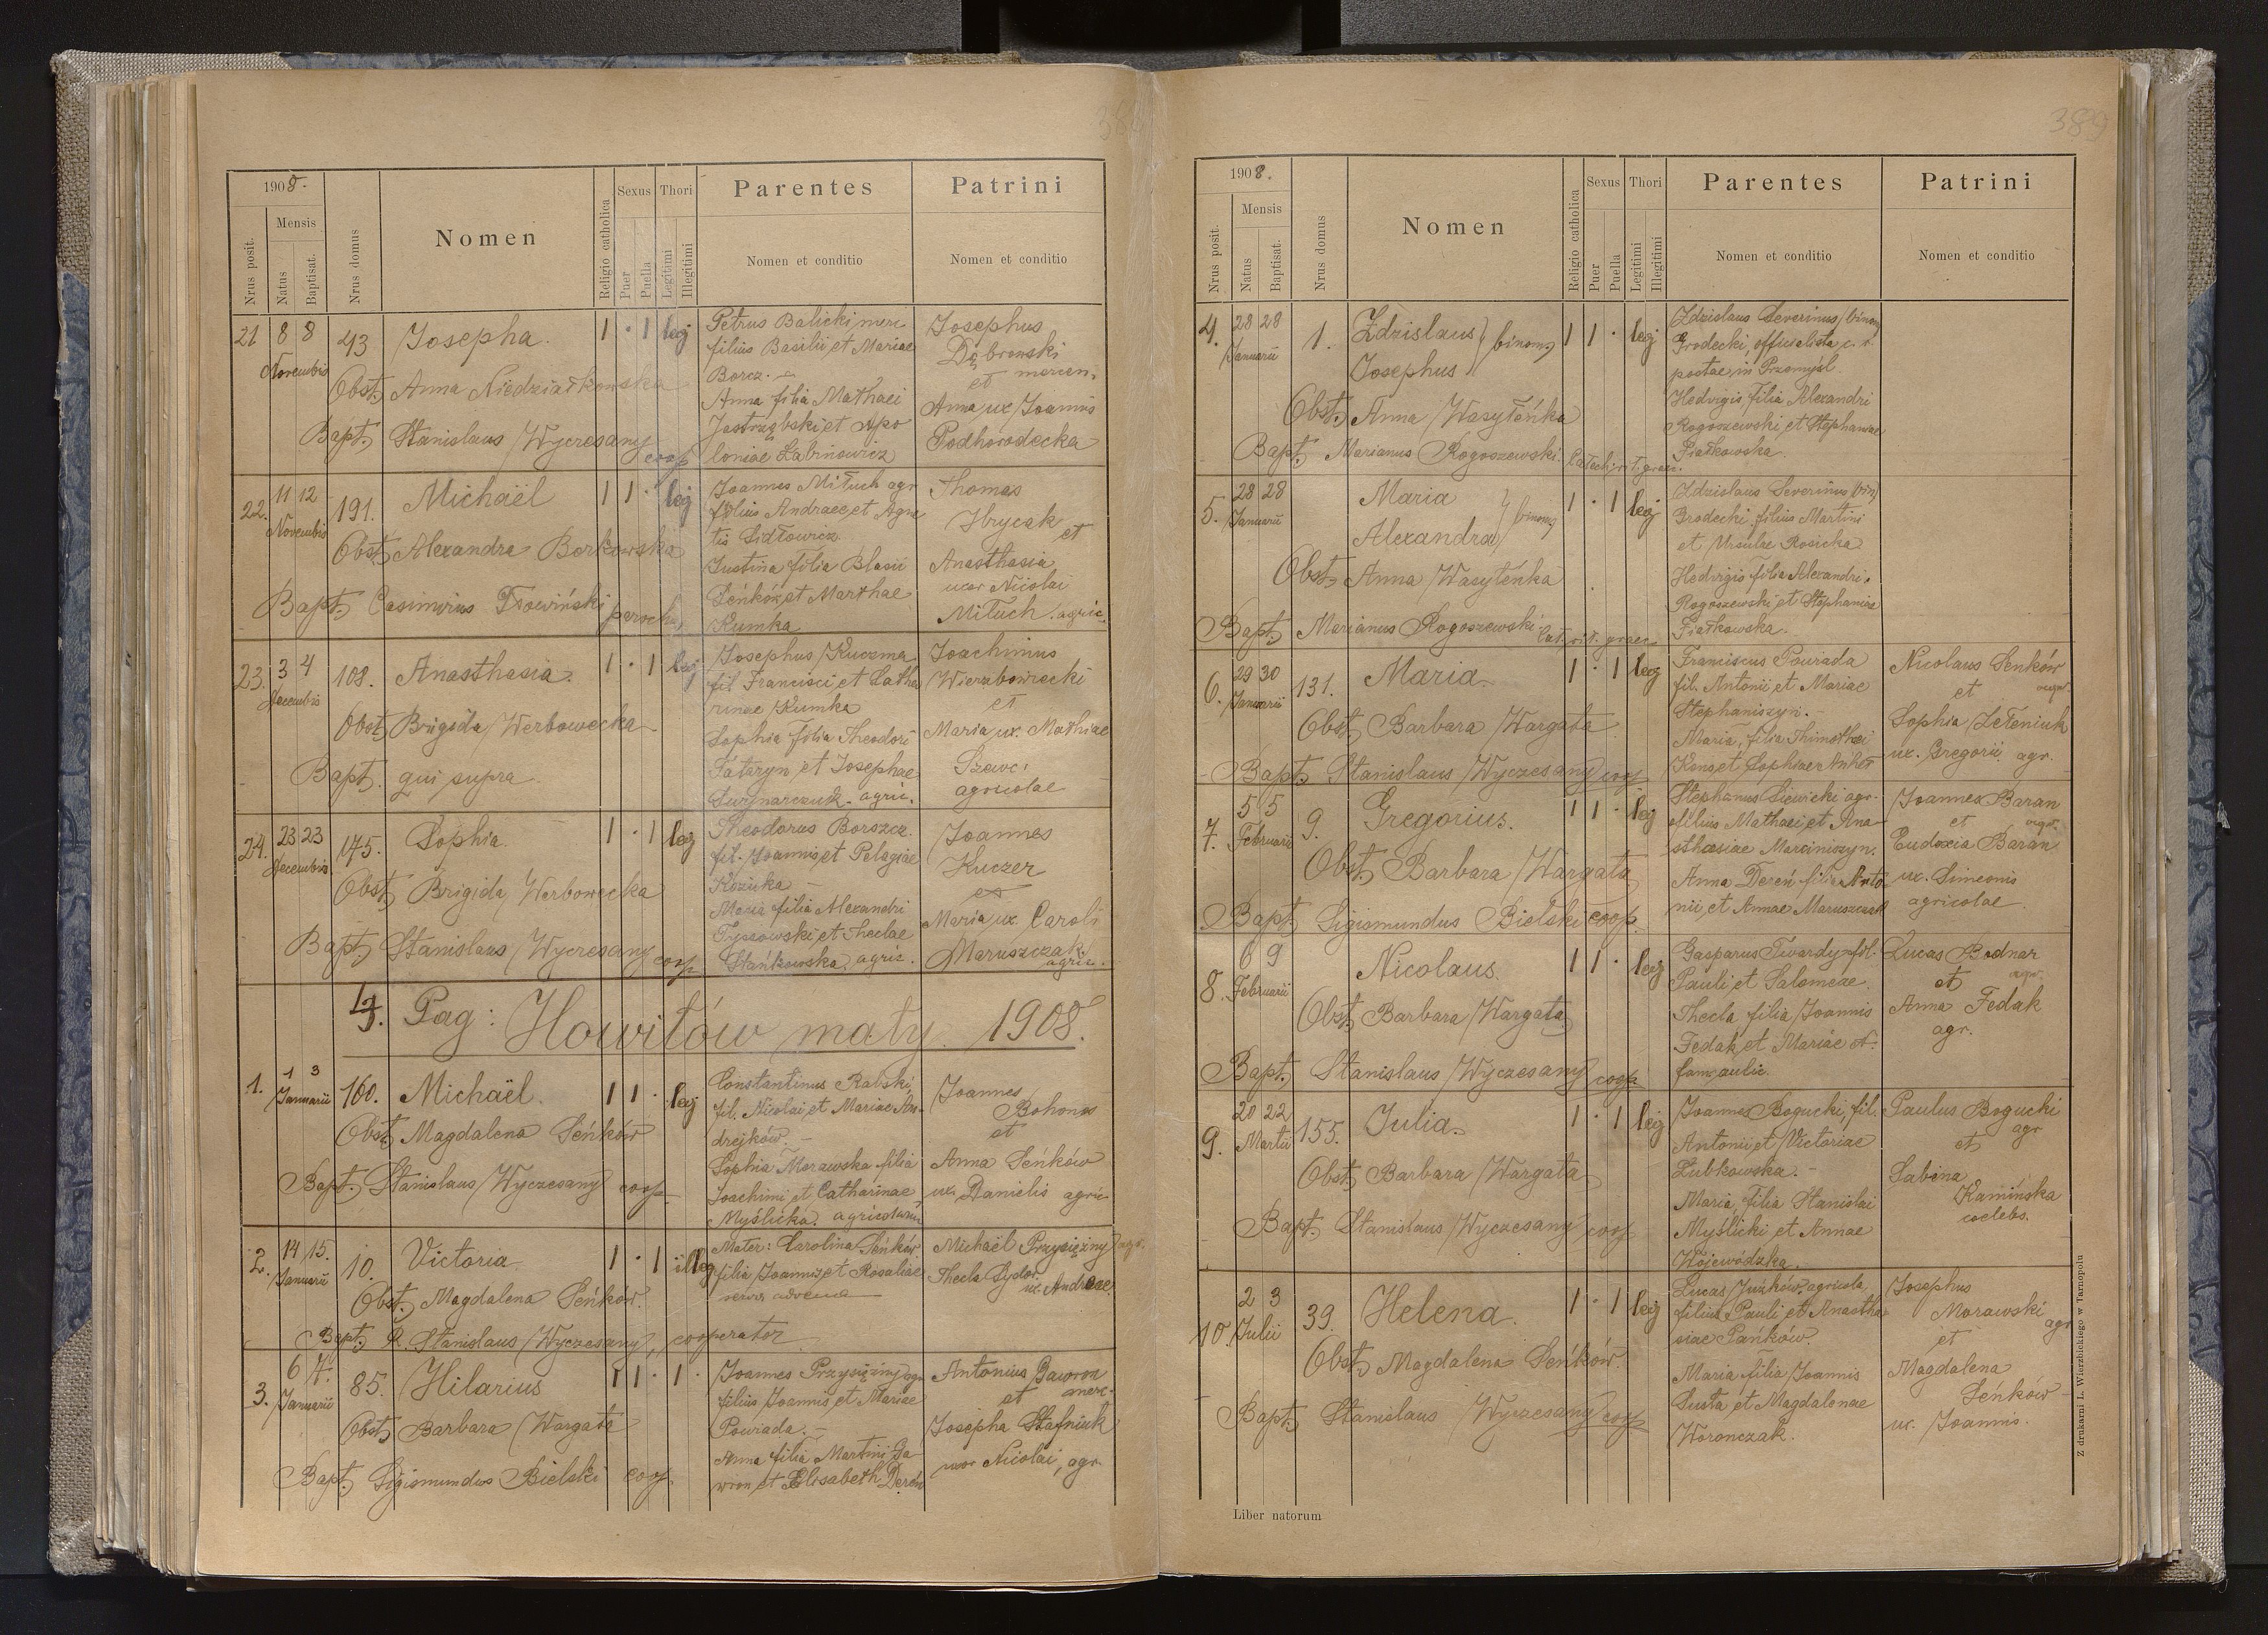 1908.
Nrus posit.
Mensis
Natus
Baptisat.
Nrus domus
Nomen
Religio catholica
Sexus
Puer
Puella
Thori
Legitimi
Illegitimi
Parentes
Nomen et conditio
Patrini
Nomen et conditio
21 8 8 43 Josepha. 1 · 1 leg
Novembris
Obst. Anna Niedziałkowska
Bapt. Stanislaus Wyczesany coop
Petrus Balicki merc
filius Basilii et Mariae
Borcz.
Anna filia Mathaei
Jastrząbski et Apo
loniae Łabinowicz
Josephus
Dąbrowski
et mercen.
Anna ux Joannis
Podhorodecka
22. 11 12 191. Michaël 1 1 · leg
Novembris
Obst. Alexandra Borkowska
Bapt. Casimirus Tłowiński paroch.
Joannes Miłuch agr
filius Andreae et Agne
tis Sidłowicz.
Justina filia Blasii
Señków et Marthae
Kumka
Thomas
Hrycak
et
Anasthasia
uxor Nicolai
Miłuch. agric.
23. 3 4 108. Anasthasia. 1 · 1 leg
Decembris
Obst. Brigida Werbowecka
Bapt. qui supra.
Josephus Kuczma
fil Francisci et Catha
rinae Kumka
Sophia filia Theodori
Tataryn et Josephae
agric.
Joachimus
Wierzbowiecki
et
Maria ux. Mathiae
Szewc.
agricolae
24. 23 23 145. Sophia. 1 · 1 leg
Decembris
Obst. Brigida Werbowecka
Bapt. Stanislaus Wyczesany coop
Theodorus Borszcz.
fil. Joannis et Pelagiae
Maria filia Alexandri
Tyszowski et Theclae
Stańkowska. agric.
Joannes
Kuczer
et
Maria ux. Caroli
Maruszczak
agric.
Pag: Howiłów mały. 1908.
1. 1 3 160. Michaël. 1 1 · leg
Januarii
Obst. Magdalena Seńków
Bapt. Stanislaus Wyczesany coop
Constantinus Rabski,
fil. Nicolai et Mariae An-
drejków.
Sophia Morawska filia
Joachimi et Catharinae
Myślicka. agricolarum
Joannes
Bohonos
et
Anna Seńków
ux. Danielis agric
2. 14 15. 10. Victoria. 1 · 1 illeg
Januarii
Obst. Magdalena Seńków.
Bapt. R. Stanislaus Wyczesany, cooperator
Mater: Carolina Seńków
filia Joannis et Rosaliae
advena
Michaël Przysiężny agr.
Thecla Sydor
ux. Andreae.
3. 6 7. 85. Hilarius 1 1 · 1 ·
Januarii
Obst. Barbara Wargata
Bapt. Sigismundus Bielski coop
Joannes Przysiężny agr
filius Joannis et Mariae
Powrada.
Anna filia Martini Ga
wron et Elisabeth Dereń
Antonius Gawron
et merc.
Josepha Stafniuk
uxor Nicolai, agr.
389
1908.
Nrus posit.
Mensis
Natus
Baptisat.
Nrus domus
Nomen
Religio catholica
Sexus
Puer
Puella
Thori
Legitimi
Illegitimi
Parentes
Nomen et conditio
Patrini
Nomen et conditio
4. 28 28 1. Zdzislaus Josephus (binom) 1 1 · leg
Januarii
Obst. Anna Wasyłeńka
Bapt. Marianus Rogoszewski. Catech. rit. graec.
Zdzislaus Severinus (binom)
Grodecki, officialista c. r.
postae in Przemyśl.
Hedvigis filia Alexandri
Rogoszewski et Stephaniae
Fiałkowska.
5. 28 28 Maria Alexandra (binom) 1 · 1 leg
Januarii
Obst. Anna Wasyłeńka
Bapt. Marianus Rogoszewski Cat. rit. graec
Zdzislaus Severinus (bin)
Grodecki filius Martini
et Ursulae Rosicka
Hedvigis filia Alexandri
Rogoszewski et Stephaniae
Fiałkowska.
6. 29 30 131. Maria. 1 · 1 leg
Januarii
Obst. Barbara Wargata
Bapt. Stanislaus Wyczesany coop
Franciscus Powrada
fil. Antonii et Mariae
Stephaniszyn.
Maria, filia Thimothei
Nicolaus Senków
et agr.
Sophia Zeleniuk
ux. Gregorii agr.
7. 5 5 9. Gregorius. 1 1 · leg
Februarii
Obst. Barbara Wargata
Bapt. Sigismundus Bielski coop.
Stephanus Siewicki agr.
filius Mathaei et Ana
sthasiae Marciniszyn.
Anna Dereń filia Anto
nii et Annae Maruszczak
Joannes Baran
et agr.
Eudoxia Baran
ux. Simeonis
agricolae
8. 6 9 Nicolaus. 1 1 · leg
Februarii
Obst. Barbara Wargata
Bapt. Stanislaus Wyczesany coop
Gasparus Twardy fil.
Pauli et Salomeae.
Thecla filia Joannis
Fedak et Mariae N.
Lucas Bodnar
et agr.
Anna Fedak
agr.
9. 20 22 155. Julia. 1 · 1 leg
Martii
Obst. Barbara Wargata
Bapt. Stanislaus Wyczesany coop
Joannes Bogucki, fil.
Antonii et Victoriae
Zubkowska.
Maria, filia Stanislai
Myślicki et Annae
Wojewódzka.
Paulus Bogucki
agr
et
Sabina
Kamińska
coelebs.
10. 2 3 39. Helena. 1 · 1 leg
Julii
Obst. Magdalena Seńków.
Bapt. Stanislaus Wyczesany coop
Lucas Juzków, agricola,
filius Pauli et Anastha
siae Pańków.
Maria filia Joannis
Susta et Magdalenae
Woronczak.
Josephus
Morawski
agr
et
Magdalena
Seńków
ux. Joannis.
Liber natorum
Z drukarni L. Wierzbickiego w Tarnopolu